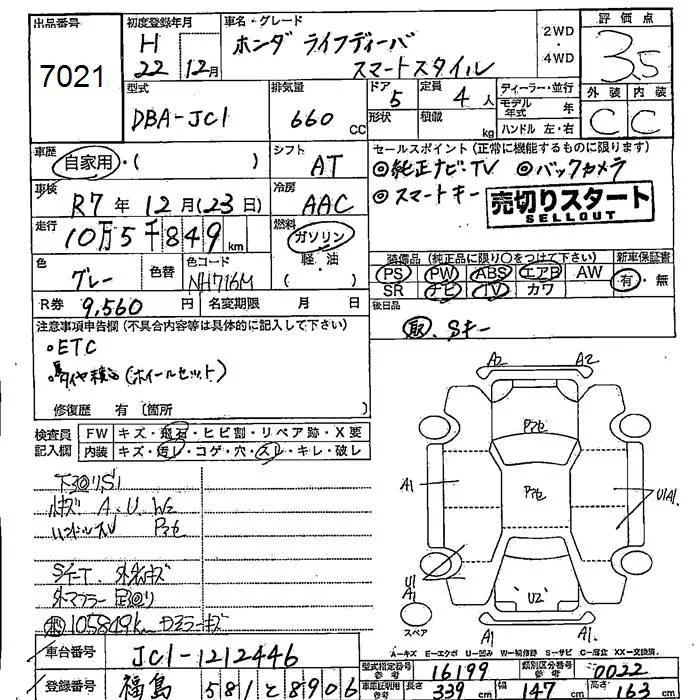 出品番号
7021
初度登録年月
H
22 12月
車名・グレード
ホンダ ライフディーバ
スマートスタイル
2WD
・
4WD
評価点
3.5
外装 内装
C C
型式
DBA-JC1
排気量
660 CC
ドア 5
定員 4 人
形状
積載 kg
ディーラー・並行
モデル年式 年
ハンドル 左・右
車歴
自家用・( )
シフト
AT
セールスポイント(正常に機能するものに限ります)
◎純正ナビ・TV ◎バックカメラ
◎スマートキー
売切りスタート
SELLOUT
車検
R7年 12月(23日)
冷房
AAC
走行
10万5千849km
燃料
ガソリン
軽・油
( )
色
グレー
色替
色コード
NH716M
装備品(純正品に限り○をつけて下さい)
PS PW ABS エアB AW
SR ナビ TV カワ
新車保証書
有・無
R券 9,560円
名変期限 月 日
後日品
取.Sキー
注意事項申告欄(不具合内容等は具体的に記入して下さい)
・ETC
・タイヤ積込(ホイールセット)
修復歴 有(箇所
検査員記入欄
FW キズ・飛石・ヒビ割・リペア跡・X要
内装 キズ・汚レ・コゲ・穴・スレ・キレ・破レ
下回りS
小キズ A.U.W2
ハンドルスレ Pアセ
外マフラー 足回り
105849km
A2 A2
Pアセ
A1
Pアセ
U1A1
U1
A1
U2
A1 A1
スペア
A-キズ E-エクボ U-凹み W-補修跡 S-サビ C-腐食 XX-交換済
車台番号
JC1-1212446
型式指定番号
参考
16199
類別区分番号
参考
0022
登録番号
福島 581 と 8906
車庫証明用
参考
長さ 339 cm
幅 147 cm
高さ 163 cm